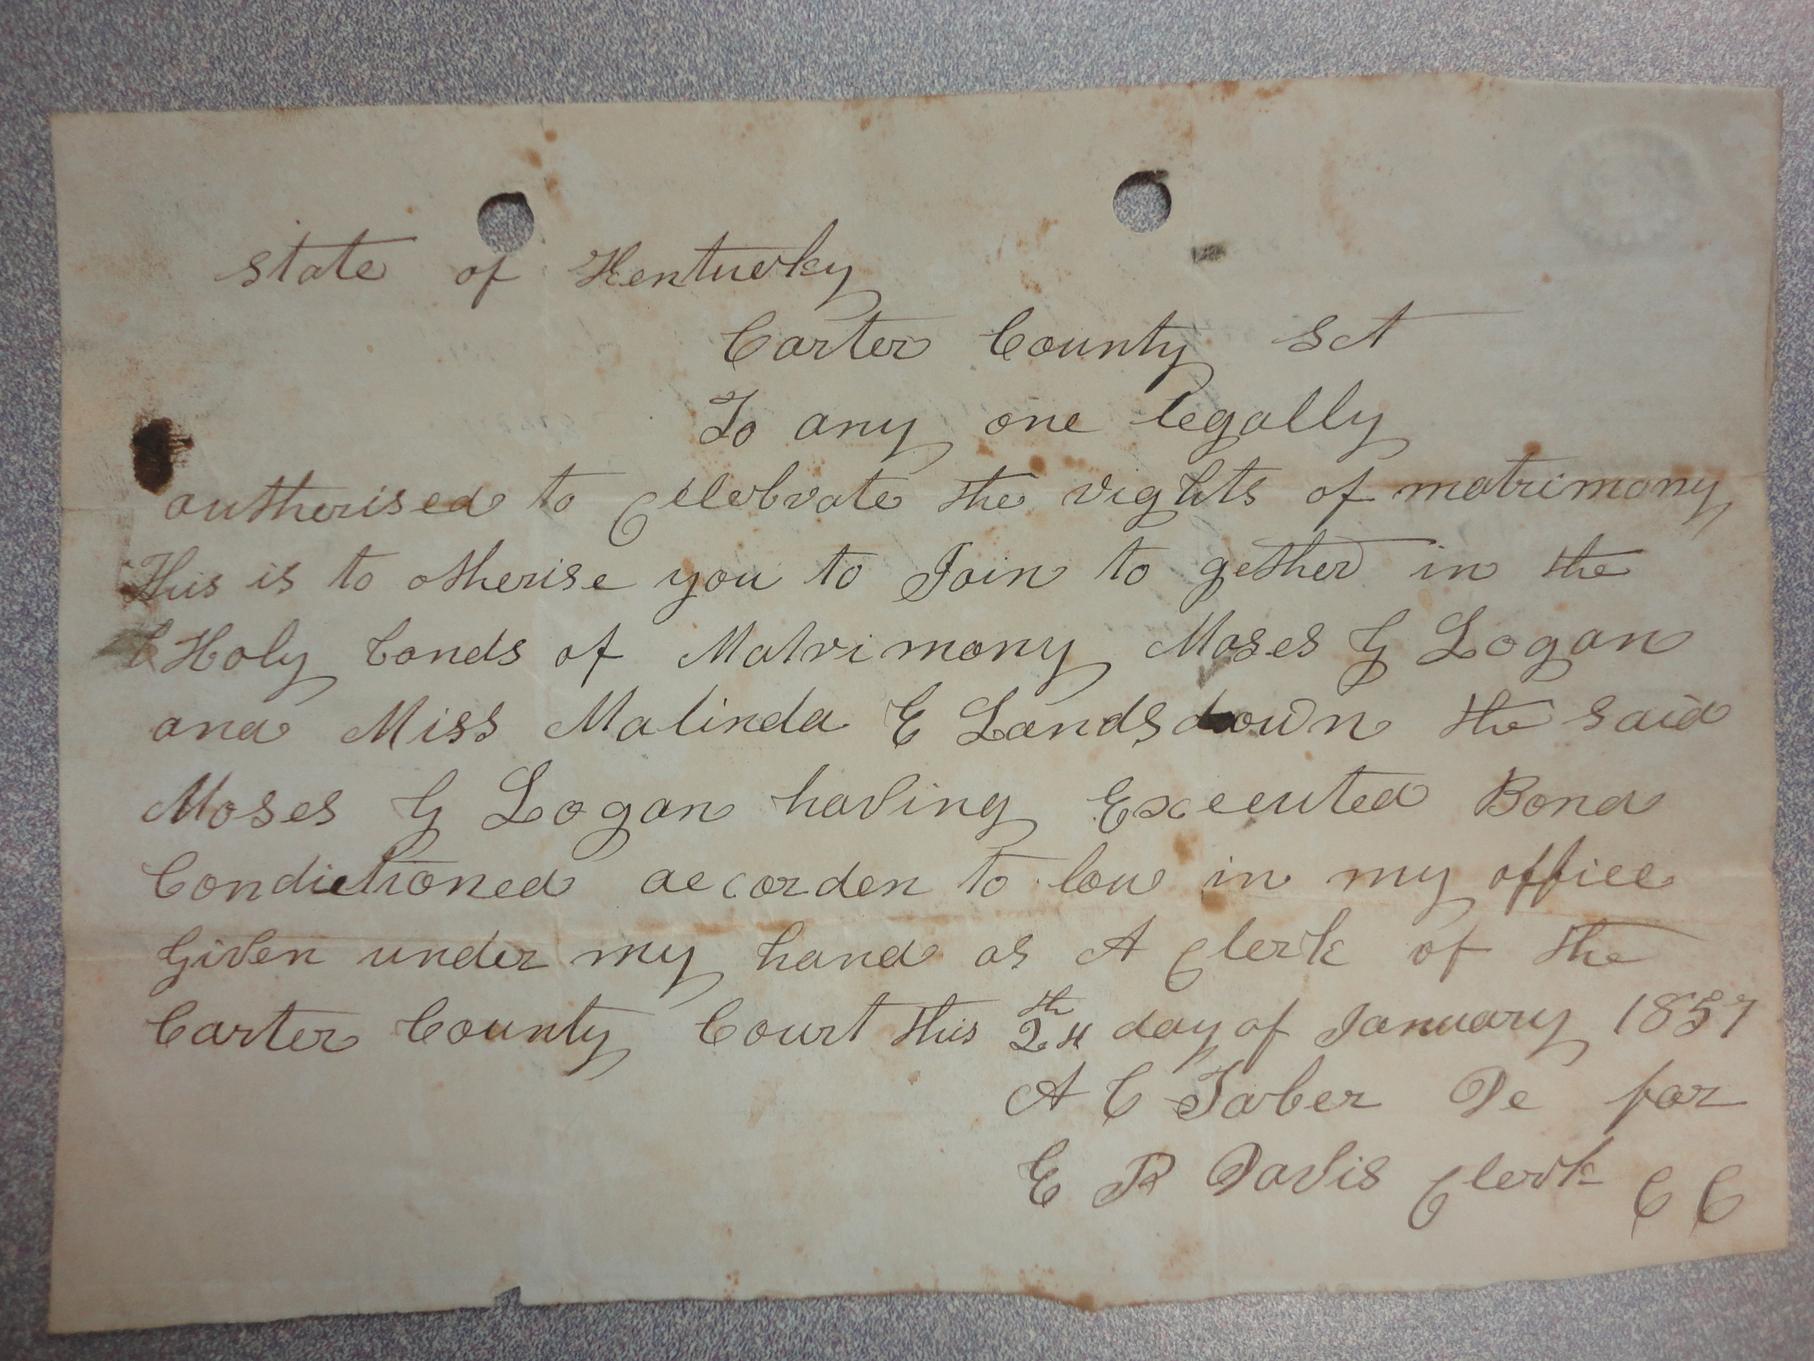 State of Kentucky
Carter County Sct
To any one legally
autherised to Celebrate the rights of matrimony
This is to otherise you to Join to gether in the
Holy bonds of Matrimony Moses G Logan
and Miss Malinda E Landsdown the said
Moses G Logan having Executed Bond
Condictioned accorden to low in my office
Given under my hand as A Clerk of the
Carter County Court this 24th day of January 1857
A C Taber De for
E R Davis Clerk C C